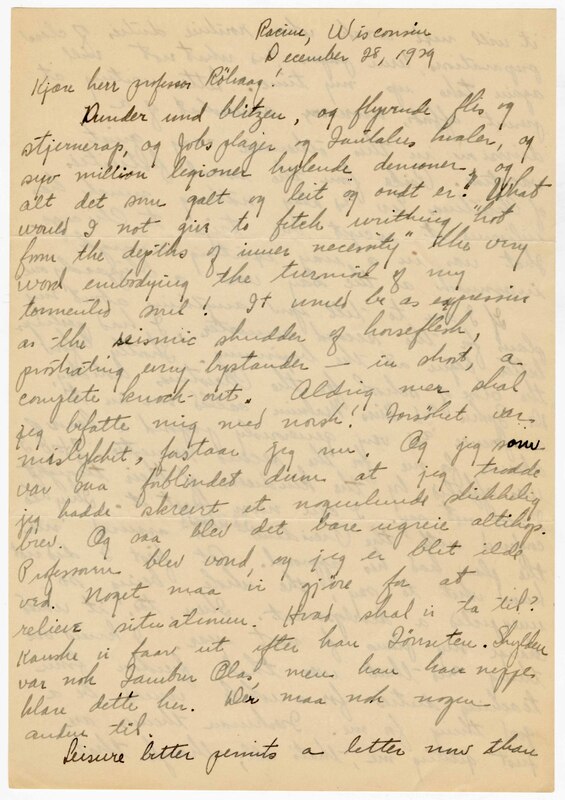 Racine, Wisconsin
December 28, 1929
Kjære herr professor Rölvaag!
Dunder und blitzen, og flyvende flis og
stjernerap, og Jobs plager og Tantalus kvaler, og
syv million legioner hylende demoner, og
alt det som galt og leit og ondt er! What
would I not give to fetch writhing "hot
from the depths of inner necessity" the very
word embodying the turmoil of my
tormented soul! It would be as expressive
as the seismic shudder of horseflesh,
prostrating every bystander — in short, a
complete knock-out. Aldrig mer skal
jeg befatte mig med norsk! Forsöket var
mislykket, forstaar jeg nu. Og jeg som
var saa forblindet dum at jeg trodde
jeg hadde skrevet et nogenlunde skikkelig
brev. Og saa blev det bare ugreie altihop.
Professoren blev vond, og jeg er blet ilde
ved. Noget maa vi gjöre for at
relieve situationen. Hvad skal vi ta til?
Kanske vi faar ut efter han Tönseten. Skylden
var nok Tambur Olas, men han kan neppe
klare dette her. Der maa nok nogen
anden til.
Leisure better permits a letter now than